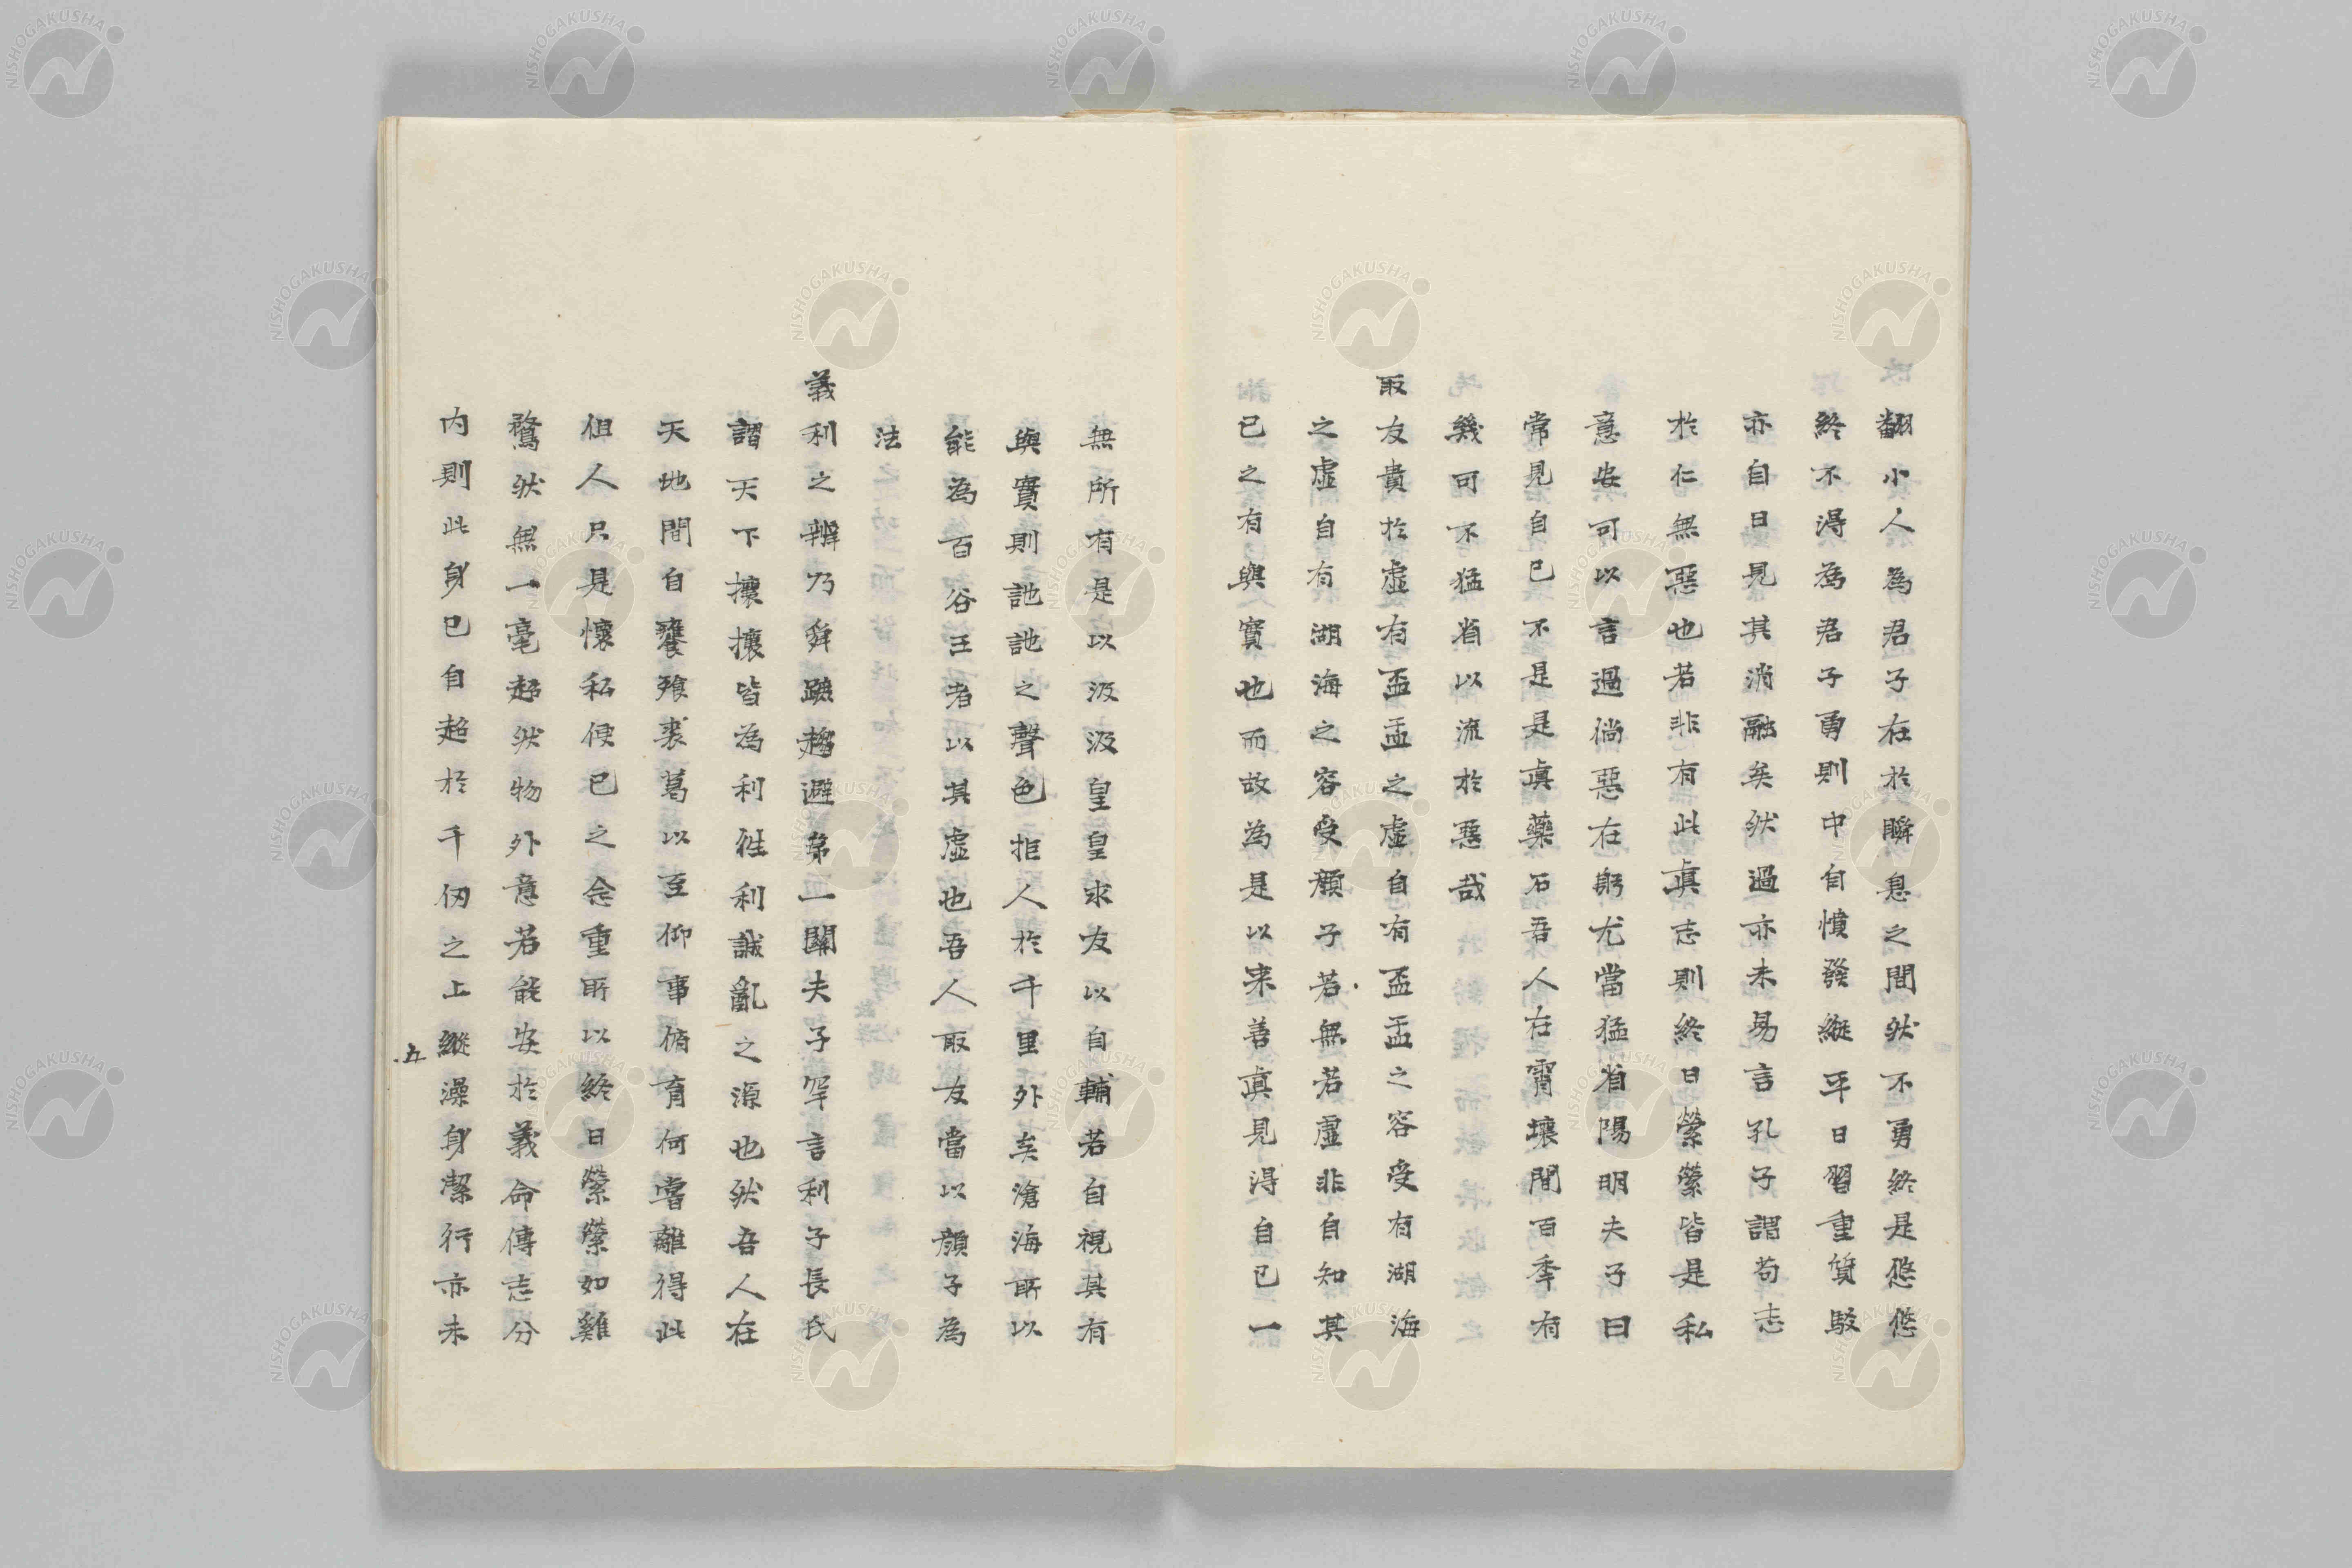 翻小人為君子在於瞬息之間然不勇終是悠悠
終不得為君子勇則中自憤發縱平日習重質駁
亦自日見其消融矣然過亦未易言孔子謂苟志
於仁無惡也若非有此眞志則終日縈縈皆是私
意安可以言過倘惡在躬尤當猛省陽明夫子曰
常見自己不是是眞藥石吾人在霄壤間百季有
幾可不猛省以流於惡哉
取友貴於虛有盃盂之虛自有盃盂之容受有湖海
之虛自有湖海之容受顏子若無若虛非自知其
已之有與實也而故為是以来善眞見得自已一
無所有是以汲汲皇皇求友以自輔若自視其有
與實則訑訑之聲色拒人於千里外矣滄海所以
能為百谷王者以其虛也吾人取友當以顏子為
法
義利之辨乃舜蹠趨避第一關夫子罕言利子長氏
謂天下攘攘皆為利往利誠亂之源也然吾人在
天地間自饔飱裘葛以至仰事俯育何嘗離得此
但人只是懷私便已之念重所以終日縈縈如雞
鶩然無一毫超然物外意若能安於義命傳志分
内則此身已自超於千仞之上縱澡身潔行亦未
五
NISHOGAKUSHA